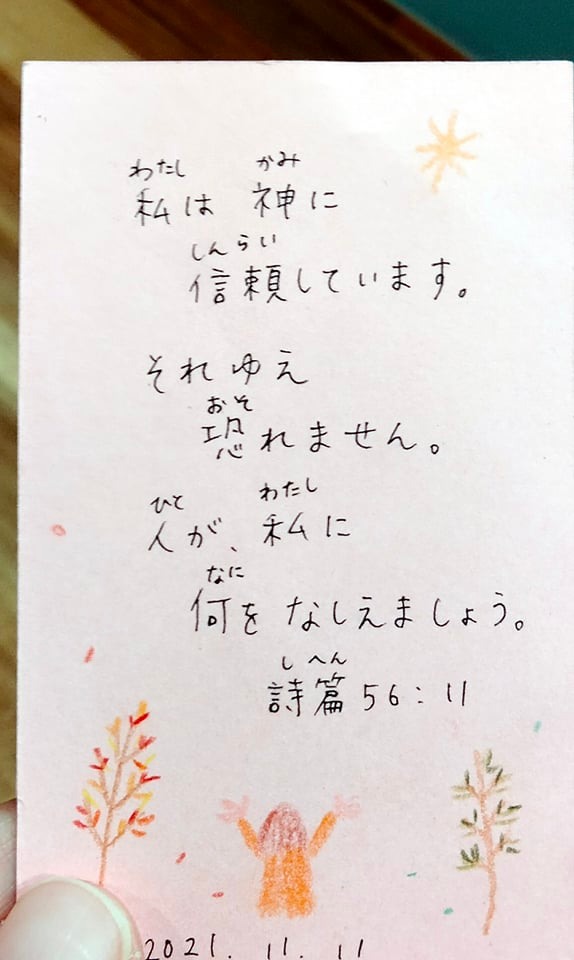 わたし かみ
私は 神に
しんらい
信頼しています。
それゆえ
おそ
恐れません。
ひと わたし
人が、私に
なに
何を なしえましょう。
しへん
詩篇56:11
2021.11.11